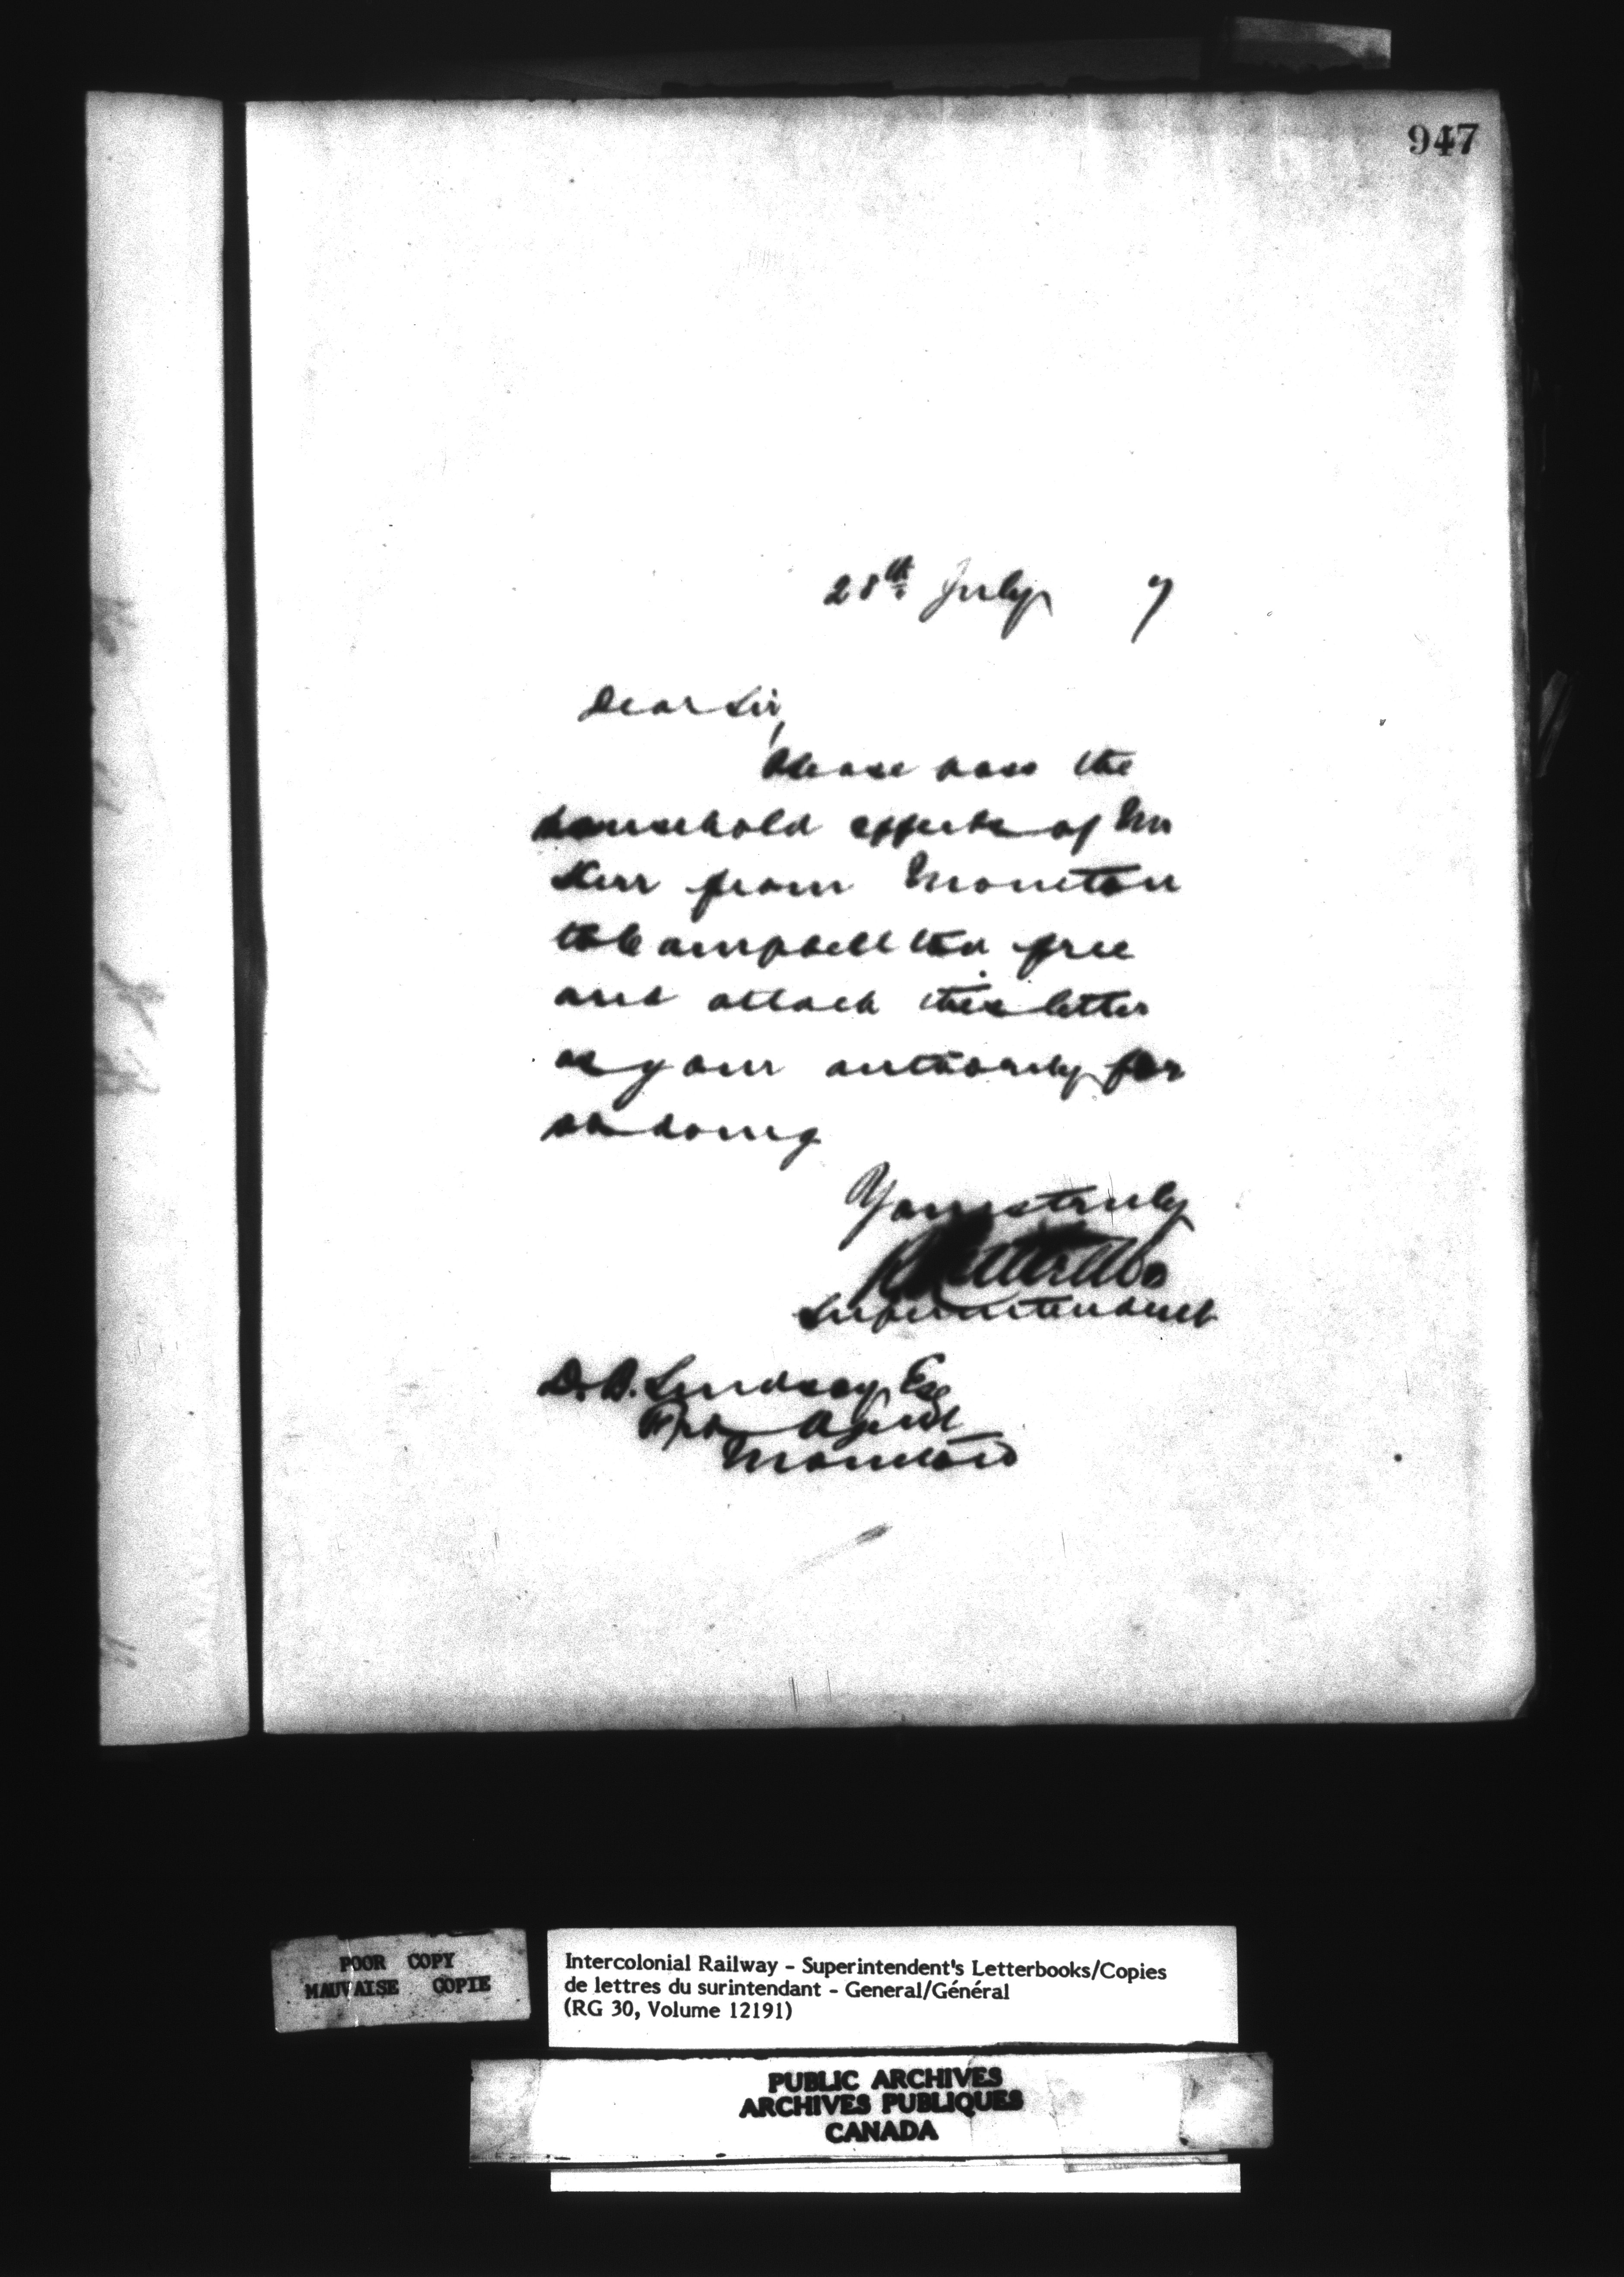 947
28th July 7
Dear Sir,
Please pass the
household effects of Mr
Kerr from Moncton
to Campbellton free
and attach this letter
as your authority for
so doing
Yours truly
Superintendent
D. B. Lindsay, Esq
Agent
Moncton
POOR COPY
MAUVAISE COPIE
Intercolonial Railway - Superintendent's Letterbooks/Copies
de lettres du surintendant - General/Général
(RG 30, Volume 12191)
PUBLIC ARCHIVES
ARCHIVES PUBLIQUES
CANADA